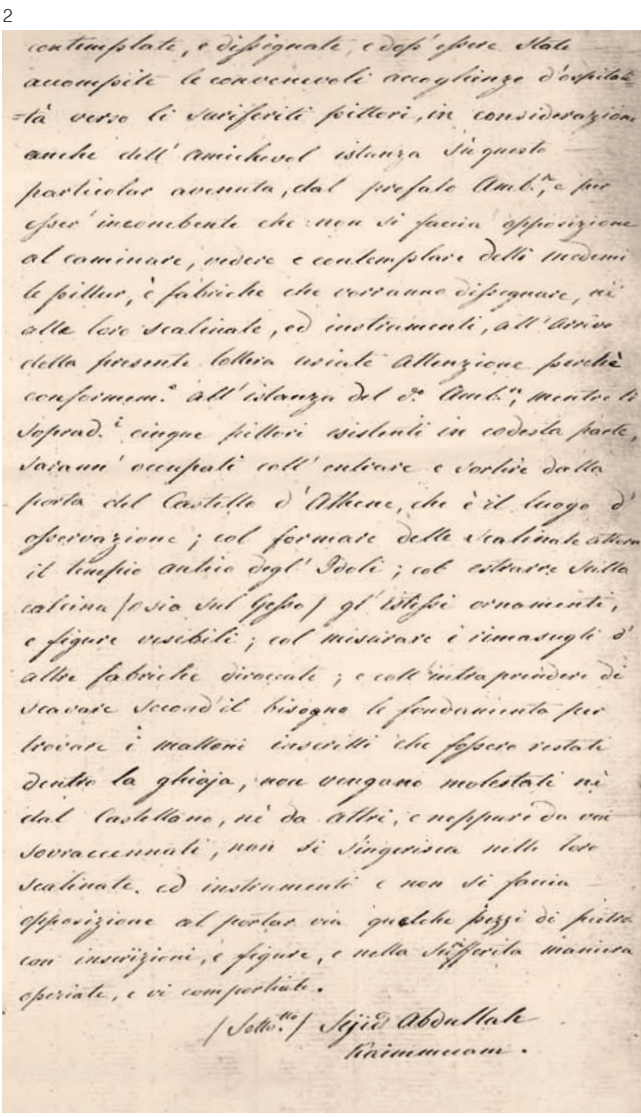 2
contemplate, e dissegnate, e dop' essere state
accompite le convenevoli accoglienze d'ospitali=
=tà verso li suriferiti pittori, in considerazione
anche dell' amichevol istanza su questo
particolar avenuta, dal prefato Amb.r, e per
esser' incombente che non si faccia opposizione
al caminare, vedere e contemplare detti medemi
le pitture, e fabriche che vorranno dissegnare, nè
alle loro scalinate, ed instrumenti, all' arrivo
della presente lettera usiate attenzione perchè
conformem.e all' istanza del d.o Amb.r, mentre li
soprad.i cinque pittori esistenti in codesta parte,
sarann' occupati coll' entrare e sortire dalla
porta del Castello d' Athene, che è il luogo d'
osservazione; col formare delle scalinate attorno
il tempio antico degl' Idoli; col estrarre sulla
calcina /osia sul gesso/ gl' istessi ornamenti,
e figure visibili; col misurare i rimasugli d'
altre fabriche diroccate; e coll' intraprendere di
scavare second' il bisogno le fondamenta per
trovare i mattoni inscritti che fossero restati
dentro la ghiaja, non vengano molestati nè
dal Castellano, nè da altri, e neppure da voi
sovraccennati, non si s'ingerisca nelle loro
scalinate. ed instrumenti e non si faccia
opposizione al portar via qualche pezzi di pietra
con inscrizioni, e figure, e nella maniera
operiate, e vi comportiate.
/Sotto.tto/ Sejid Abdullah
Kaimmecam.